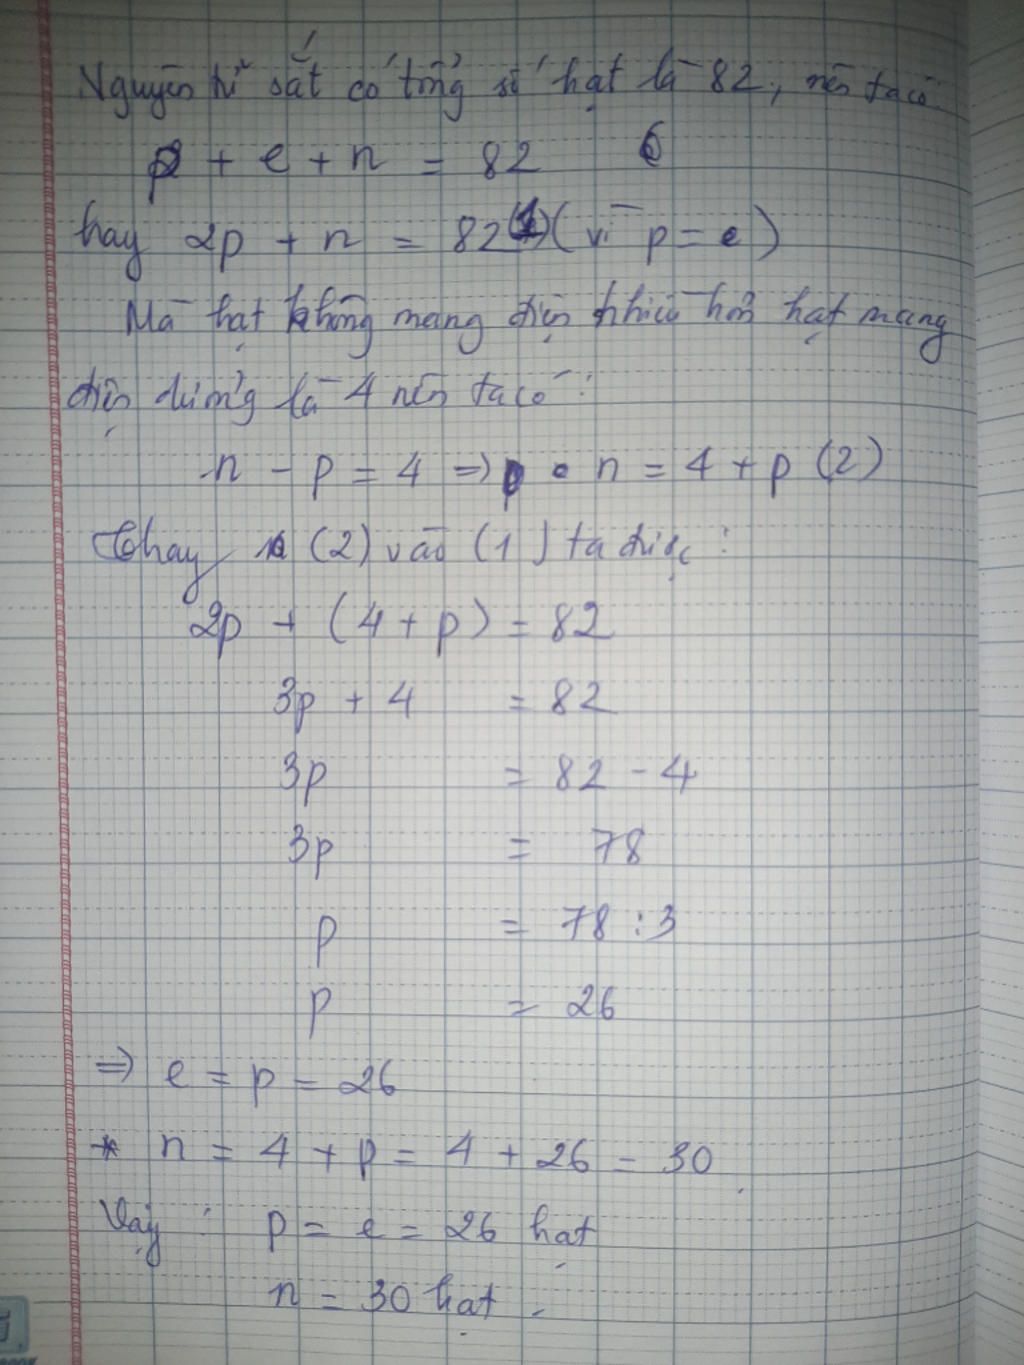 Nguyên tử sắt có tổng số hạt là 82, nên ta có
p + e + n = 82
hay 2p + n = 82 (1) (vì p = e)
Mà hạt không mang điện nhiều hơn hạt mang
điện dương là 4 nên ta có :
n - p = 4 => n = 4 + p (2)
Thay (2) vào (1) ta được :
2p + (4 + p) = 82
3p + 4 = 82
3p = 82 - 4
3p = 78
p = 78 : 3
p = 26
=> e = p = 26
* n = 4 + p = 4 + 26 = 30
Vậy : p = e = 26 hạt
n = 30 hạt.